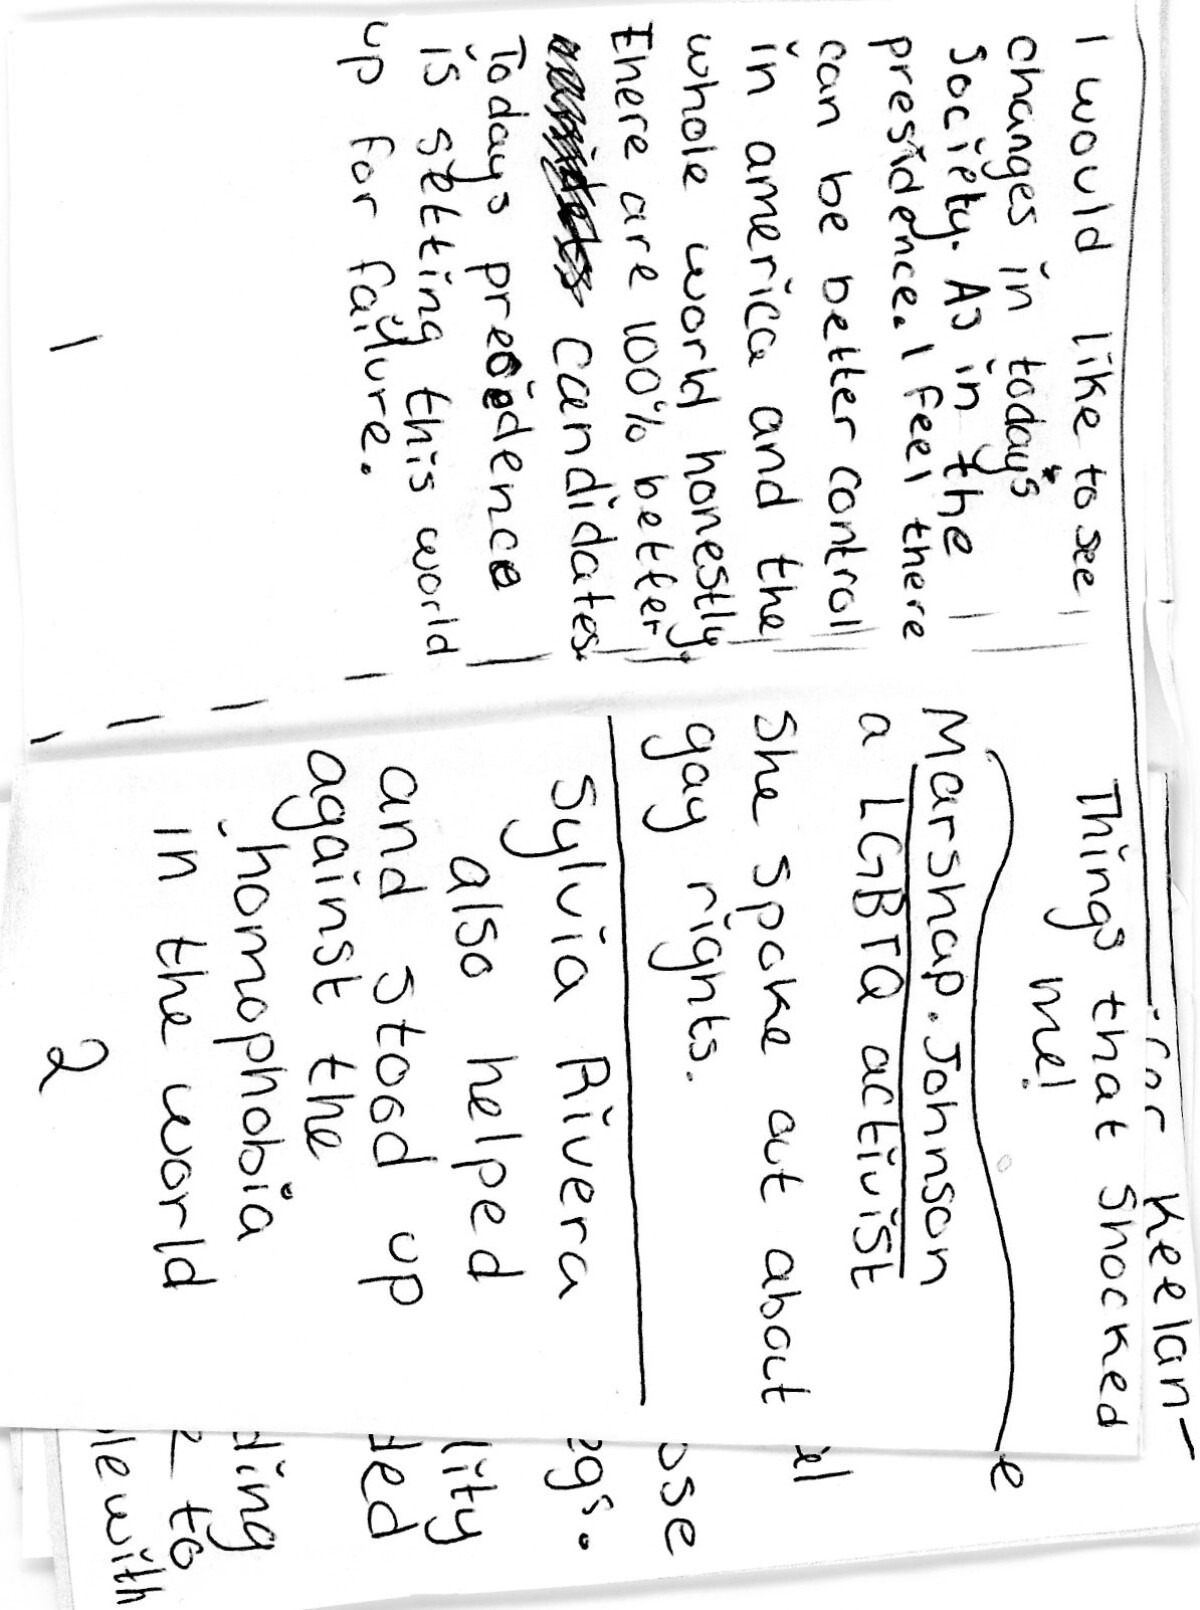 I would like to see
changes in today's
society. As in the
presidence. I feel there
can be better control
in america and the
whole world honestly.
There are 100% better
candidates.
Todays presidence
is setting this world
up for failure.
Things that shocked
me!
Marshap. Johnson
a LGBTQ activist
She spoke out about
gay rights.
Sylvia Rivera
also helped
and stood up
against the
homophobia
in the world
2
for Keelan-
e
el
ose
egs.
lity
ded
ding
e to
le with